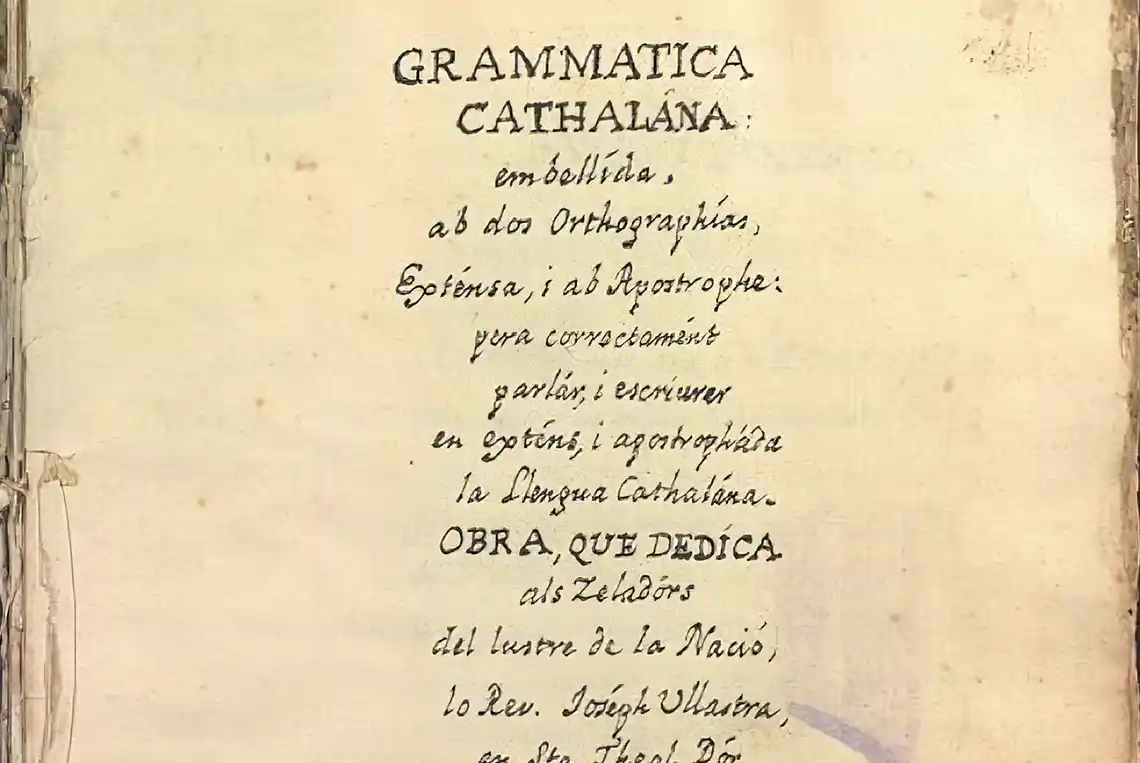 GRAMMATICA
CATHALÁNA:
embellída,
ab dos Orthographías,
Exténsa, i ab Apostrophe:
pera correctamént
parlár, i escriurer
en exténs, i apostropháda
la Llengua Cathalána.
OBRA, QUE DEDÍCA
als Zeladórs
del lustre de la Nació,
lo Rev. Joséph Ullastra,
en Sta. Theol. Dór